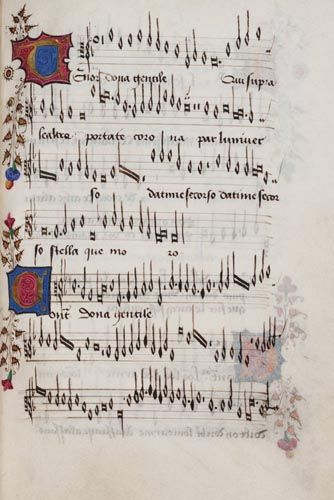 Tenor dona gentile Qui supra
lealtre portate coro na par luniver
so datime secorso datime secor
so stella que mo ro.
Cont dona gentile